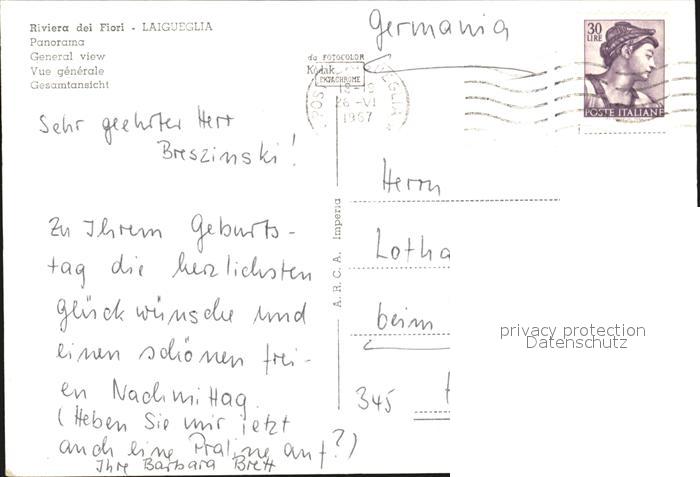 Riviera dei Fiori - LAIGUEGLIA
Panorama
General view
Vue générale
Gesamtansicht
da FOTOCOLOR
Kodak
EKTACHROME
Germania
30
LIRE
POSTE ITALIANE
26-VI
1967
Sehr geehrter Herr
Breszinski!
Zu Ihrem Geburts-
tag die herzlichsten
Glückwünsche und
einen schönen frei-
en Nachmittag.
(Heben Sie mir jetzt
auch eine Praline auf?)
Ihre Barbara Brett
A.R.C.A. Imperia
Herrn
Lotha
beim
345
privacy protection
Datenschutz